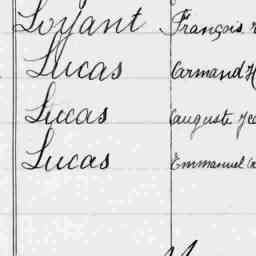 Loyant François
Lucas Armand H
Lucas Auguste Jea
Lucas Emmanuel